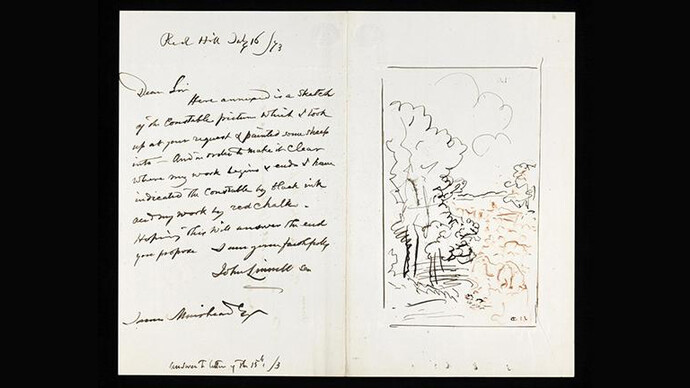 Red Hill July 16/73
Dear Sir
Here annexed is a sketch
of the Constable picture which I took
up at your request & painted some sheep
into - And in order to make it clear
where my work begins & ends I have
indicated the Constable by black ink
and my work by red chalk.
Hoping this will answer the end
you propose I am yours faithfully
John Linnell Sen
James Muirhead Esq
Answer to letter of the 15th /3